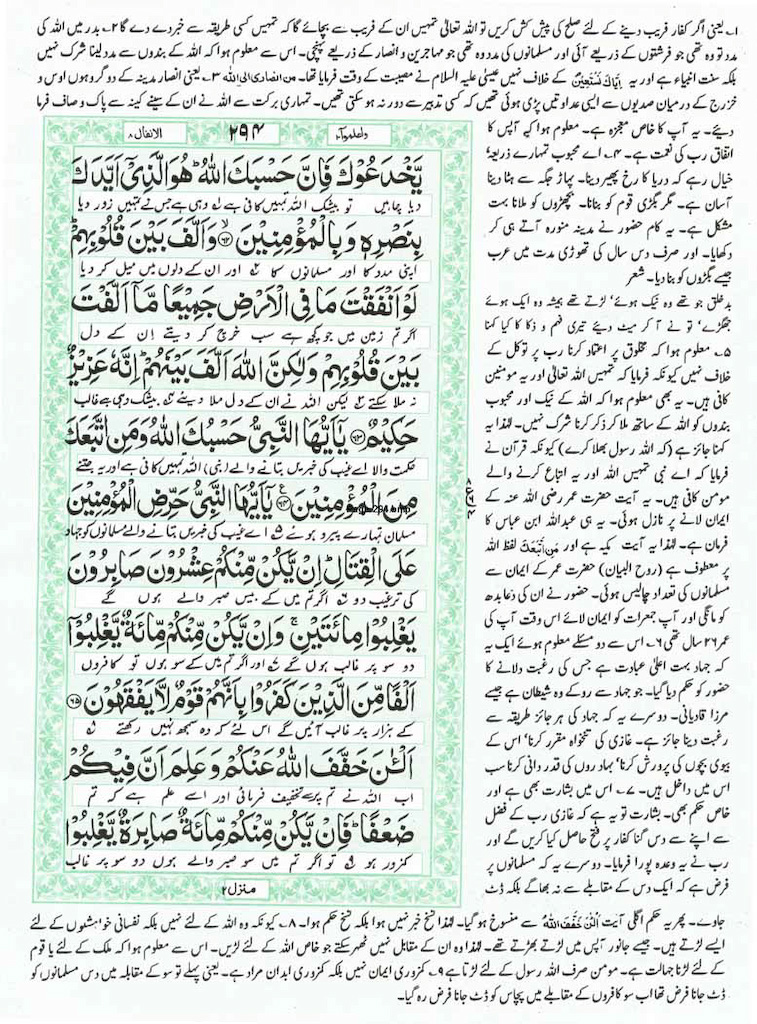 ۱۔ یعنی اگر کفار فریب دینے کے لئے صلح کی پیش کش کریں تو اللہ تعالیٰ تمہیں ان کے فریب سے بچائے گا کہ تمہیں کسی طریقہ سے خبر دے دے گا ۲۔ بدر میں اللہ کی
مدد تو وہ تھی جو فرشتوں کے ذریعے آئی اور مسلمانوں کی مدد وہ تھی جو مہاجرین و انصار کے ذریعے پہنچی۔ اس سے معلوم ہوا کہ اللہ کے بندوں سے مدد لینا شرک نہیں
بلکہ سنت انبیاء ہے اور یہ اِیَّاکَ نَسْتَعِیْنُ کے خلاف نہیں عیسیٰ علیہ السلام نے مصیبت کے وقت فرمایا تھا۔ من انصاری الی اللہ ۳۔ یعنی انصار مدینہ کے دو گروہوں اوس و
خزرج کے درمیان صدیوں سے ایسی عداوتیں پڑی ہوئی تھیں کہ کسی تدبیر سے دور نہ ہو سکتی تھیں۔ تمہاری برکت سے اللہ نے ان کے سینے کینہ سے پاک و صاف فرما
دیئے۔ یہ آپ کا خاص معجزہ ہے۔ معلوم ہوا کہ آپس کا
اتفاق رب کی نعمت ہے۔ ۴۔ اے محبوب تمہارے ذریعہ
خیال رہے کہ دریا کا رخ پھیر دینا۔ پہاڑ جگہ سے ہٹا دینا
آسان ہے۔ مگر بگڑی قوم کو بنانا۔ بچھڑوں کو ملانا بہت
مشکل ہے۔ یہ کام حضور نے مدینہ منورہ آتے ہی کر
دکھایا۔ اور صرف دس سال کی تھوڑی مدت میں عرب
جیسے بگڑوں کو بنا دیا۔ شعر
بد خلق جو تھے وہ نیک ہوئے' لڑتے تھے ہمیشہ وہ ایک ہوئے
جھگڑے' تو نے آ کر میٹ دیئے تیری فہم و ذکا کا کیا کہنا
۵۔ معلوم ہوا کہ مخلوق پر اعتماد کرنا رب پر توکل کے
خلاف نہیں کیونکہ فرمایا کہ تمہیں اللہ تعالیٰ اور یہ مومنین
کافی ہیں۔ یہ بھی معلوم ہوا کہ اللہ کے نیک اور محبوب
بندوں کو اللہ کے ساتھ ملا کر ذکر کرنا شرک نہیں۔ لہٰذا یہ
کہنا جائز ہے (کہ اللہ رسول بھلا کرے) کیونکہ قرآن نے
فرمایا کہ اے نبی تمہیں اللہ اور یہ اتباع کرنے والے
مومن کافی ہیں۔ یہ آیت حضرت عمر رضی اللہ عنہ کے
ایمان لانے پر نازل ہوئی۔ یہ ہی عبداللہ ابن عباس کا
فرمان ہے۔ لہٰذا یہ آیت مکیہ ہے اور مَنِ اتَّبَعَکَ لفظ اللہ
پر معطوف ہے (روح البیان) حضرت عمر کے ایمان سے
مسلمانوں کی تعداد چالیس ہوئی۔ حضور نے ان کی دعا بدھ
کو مانگی اور آپ جمعرات کو ایمان لائے اس وقت آپ کی
عمر ۲۶ سال تھی ۶۔ اس سے دو مسئلے معلوم ہوئے ایک یہ
کہ جہاد بہت اعلیٰ عبادت ہے جس کی رغبت دلانے کا
حضور کو حکم دیا گیا۔ جو جہاد سے روکے وہ شیطان ہے جیسے
مرزا قادیانی۔ دوسرے یہ کہ جہاد کی ہر جائز طریقہ سے
رغبت دینا جائز ہے۔ غازی کی تنخواہ مقرر کرنا' اس کے
بیوی بچوں کی پرورش کرنا' بہادروں کی قدر دانی کرنا سب
اس میں داخل ہیں۔ ۷۔ اس میں بشارت بھی ہے اور
خاص حکم بھی۔ بشارت تو یہ ہے کہ غازی رب کے فضل
سے اپنے سے دس گنا کفار پر فتح حاصل کیا کریں گے اور
رب نے یہ وعدہ پورا فرمایا۔ دوسرے یہ کہ مسلمانوں پر
فرض ہے کہ ایک دس کے مقابلے سے نہ بھاگے بلکہ ڈٹ
واعلموآ۱۰ ۲۹۴ الانفال ۸
يَّخْدَعُوْكَ فَاِنَّ حَسْبَكَ اللّٰهُ ؕ هُوَ الَّذِيْۤ اَيَّدَكَ
دیا چاہیں تو بیشک اللہ تمہیں کافی ہے ۱ وہی ہے جس نے تمہیں زور دیا
بِنَصْرِهٖ وَبِالْمُؤْمِنِيْنَ ۙ۶۲ وَاَلَّفَ بَيْنَ قُلُوْبِهِمْ ؕ
اپنی مدد کا اور مسلمانوں کا ۲ اور ان کے دلوں میں میل کر دیا
لَوْ اَنْفَقْتَ مَا فِي الْاَرْضِ جَمِيْعًا مَّاۤ اَلَّفْتَ
اگر تم زمین میں جو کچھ ہے سب خرچ کر دیتے ان کے دل
بَيْنَ قُلُوْبِهِمْ وَلٰكِنَّ اللّٰهَ اَلَّفَ بَيْنَهُمْ ؕ اِنَّهٗ عَزِيْزٌ
نہ ملا سکتے ۳ لیکن اللہ نے ان کے دل ملا دیئے ۴ بیشک وہی ہے غالب
حَكِيْمٌ ۶۳ يٰۤاَيُّهَا النَّبِيُّ حَسْبُكَ اللّٰهُ وَمَنِ اتَّبَعَكَ
حکمت والا اے غیب کی خبریں بتانے والے (نبی) اللہ تمہیں کافی ہے اور یہ جتنے
مِنَ الْمُؤْمِنِيْنَ ۶۴ يٰۤاَيُّهَا النَّبِيُّ حَرِّضِ الْمُؤْمِنِيْنَ
مسلمان تمہارے پیرو ہوئے ۵ اے غیب کی خبریں بتانے والے مسلمانوں کو جہاد
عَلَي الْقِتَالِ ؕ اِنْ يَّكُنْ مِّنْكُمْ عِشْرُوْنَ صَابِرُوْنَ
کی ترغیب دو ۶ اگر تم میں کے بیس صبر والے ہوں گے
يَغْلِبُوْا مِائَتَيْنِ ۚ وَاِنْ يَّكُنْ مِّنْكُمْ مِّائَةٌ يَّغْلِبُوْۤا
دو سو پر غالب ہوں گے ۷ اور اگر تم میں کے سو ہوں تو کافروں
اَلْفًا مِّنَ الَّذِيْنَ كَفَرُوْا بِاَنَّهُمْ قَوْمٌ لَّا يَفْقَهُوْنَ ۶۵
کے ہزار پر غالب آئیں گے اس لئے کہ وہ سمجھ نہیں رکھتے ۸
اَلْـٰٔنَ خَفَّفَ اللّٰهُ عَنْكُمْ وَعَلِمَ اَنَّ فِيْكُمْ
اب اللہ نے تم پر سے تخفیف فرمائی اور اسے علم ہے کہ تم
ضَعْفًا ؕ فَاِنْ يَّكُنْ مِّنْكُمْ مِّائَةٌ صَابِرَةٌ يَّغْلِبُوْا
کمزور ہو ۹ تو اگر تم میں سو صبر والے ہوں دو سو پر غالب
منزل ۲
جاوے۔ پھر یہ حکم اگلی آیت اَلْـٰٔنَ خَفَّفَ اللّٰهُ سے منسوخ ہو گیا۔ لہٰذا نسخ خبر نہیں ہوا بلکہ نسخ حکم ہوا۔ ۸۔ کیونکہ وہ اللہ کے لئے نہیں بلکہ نفسانی خواہشوں کے لئے
ایسے لڑتے ہیں۔ جیسے جانور آپس میں لڑتے بھڑتے تھے۔ لہٰذا وہ ان کے مقابل نہیں ٹھہر سکتے جو خاص اللہ کے لئے لڑیں۔ اس سے معلوم ہوا کہ ملک کے لئے یا قوم
کے لئے لڑنا جہالت ہے۔ مومن صرف اللہ رسول کے لئے لڑتا ہے ۹۔ کمزوری ایمان نہیں بلکہ کمزوری ابدان مراد ہے۔ یعنی پہلے تو سو کے مقابلہ میں دس مسلمانوں کو
ڈٹ جانا فرض تھا اب سو کافروں کے مقابلے میں پچاس کو ڈٹ جانا فرض رہ گیا۔